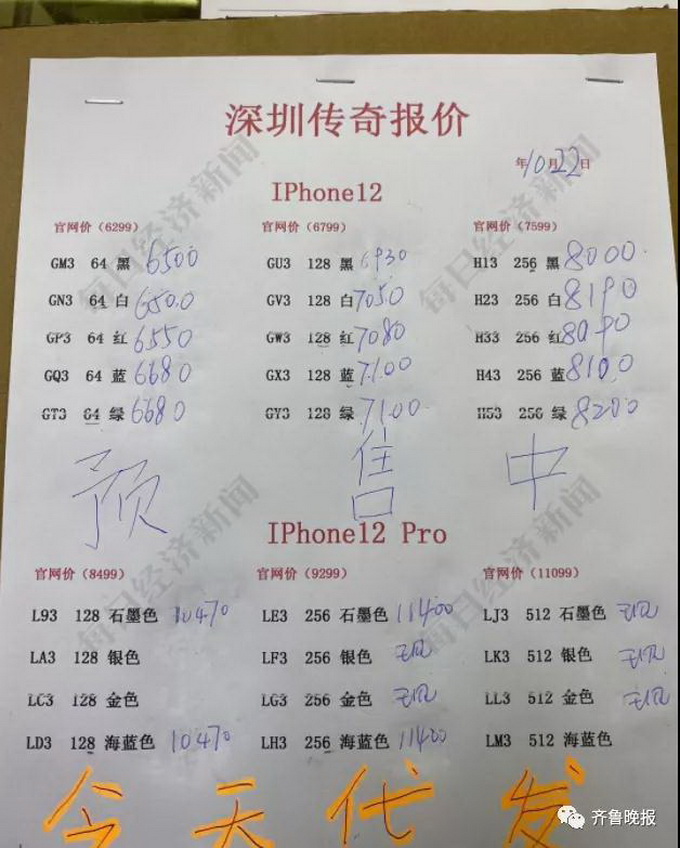 深圳传奇报价
年10月22日
IPhone12
官网价（6299） 官网价（6799） 官网价（7599）
GM3 64 黑 6500 GU3 128 黑 6930 H13 256 黑 8000
GN3 64 白 6500 GV3 128 白 7050 H23 256 白 8190
GP3 64 红 6550 GW3 128 红 7080 H33 256 红 8090
GQ3 64 蓝 6680 GX3 128 蓝 7100 H43 256 蓝 8100
GT3 64 绿 6680 GY3 128 绿 7100 H53 256 绿 8200
预售中
IPhone12 Pro
官网价（8499） 官网价（9299） 官网价（11099）
L93 128 石墨色 10470 LE3 256 石墨色 11400 LJ3 512 石墨色
LA3 128 银色 LF3 256 银色 LK3 512 银色
LC3 128 金色 LG3 256 金色 LL3 512 金色
LD3 128 海蓝色 10470 LH3 256 海蓝色 11400 LM3 512 海蓝色
今天代发
每日经济新闻
每日经济新闻
每日经济新闻
每日经济新闻
齐鲁晚报